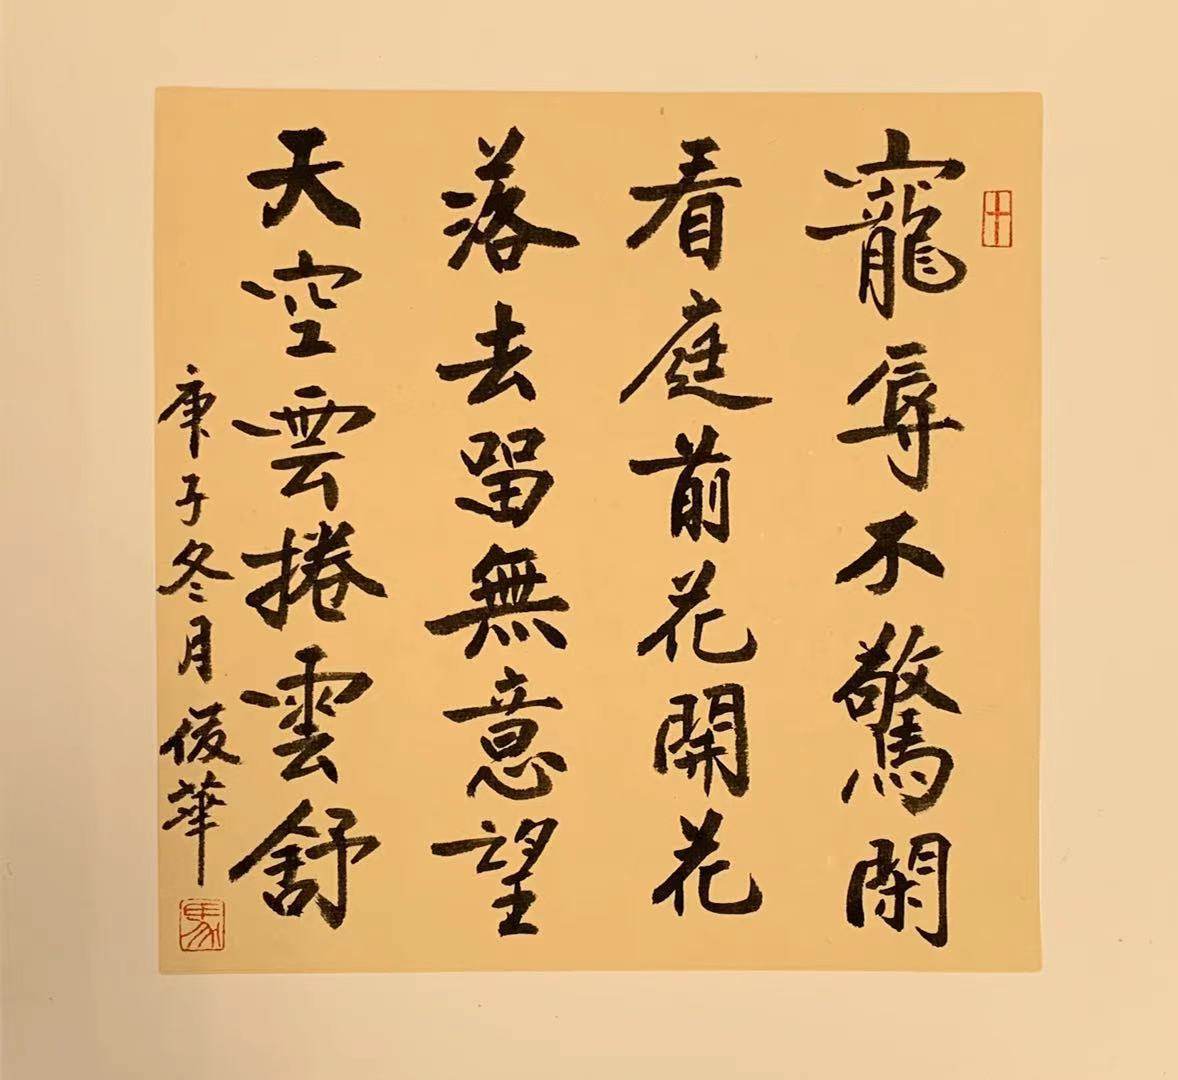 寵辱不驚閑
看庭前花開花
落去留無意望
天空雲捲雲舒
庚子冬月俊華